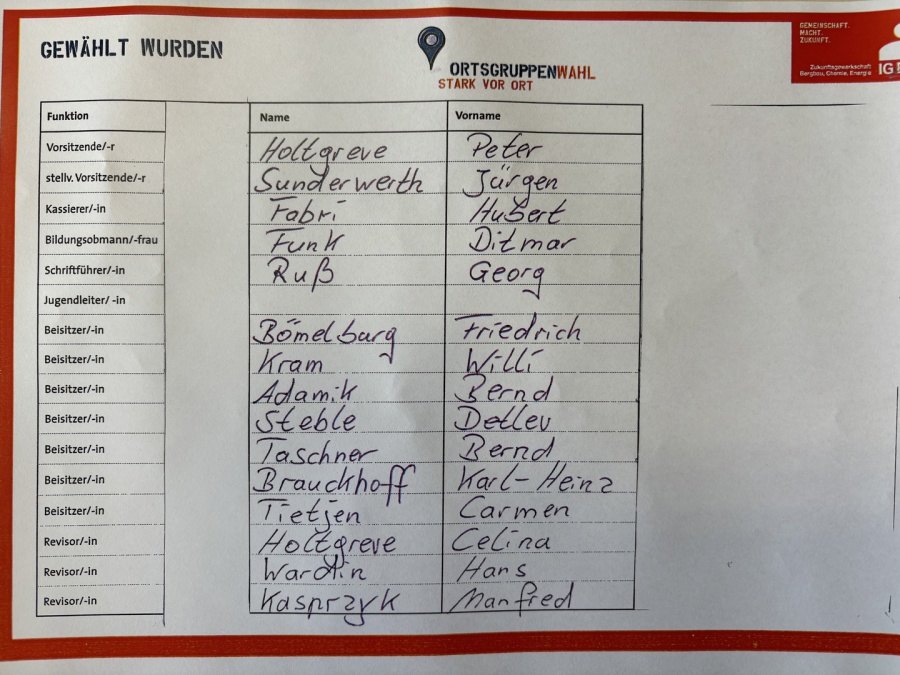 GEWÄHLT WURDEN
ORTSGRUPPENWAHL
STARK VOR ORT
GEMEINSCHAFT.
MACHT.
ZUKUNFT.
Zukunftsgewerkschaft
Bergbau, Chemie, Energie
IG
Funktion Name Vorname
Vorsitzende/-r Holtgreve Peter
stellv. Vorsitzende/-r Sunderwerth Jürgen
Kassierer/-in Fabri Hubert
Bildungsobmann/-frau Funk Ditmar
Schriftführer/-in Ruß Georg
Jugendleiter/ -in
Beisitzer/-in Bömelburg Friedrich
Beisitzer/-in Kram Willi
Beisitzer/-in Adamik Bernd
Beisitzer/-in Steble Detlev
Beisitzer/-in Taschner Bernd
Beisitzer/-in Brauckhoff Karl-Heinz
Beisitzer/-in Tietjen Carmen
Revisor/-in Holtgreve Celina
Revisor/-in Hans
Revisor/-in Kasprzyk Manfred